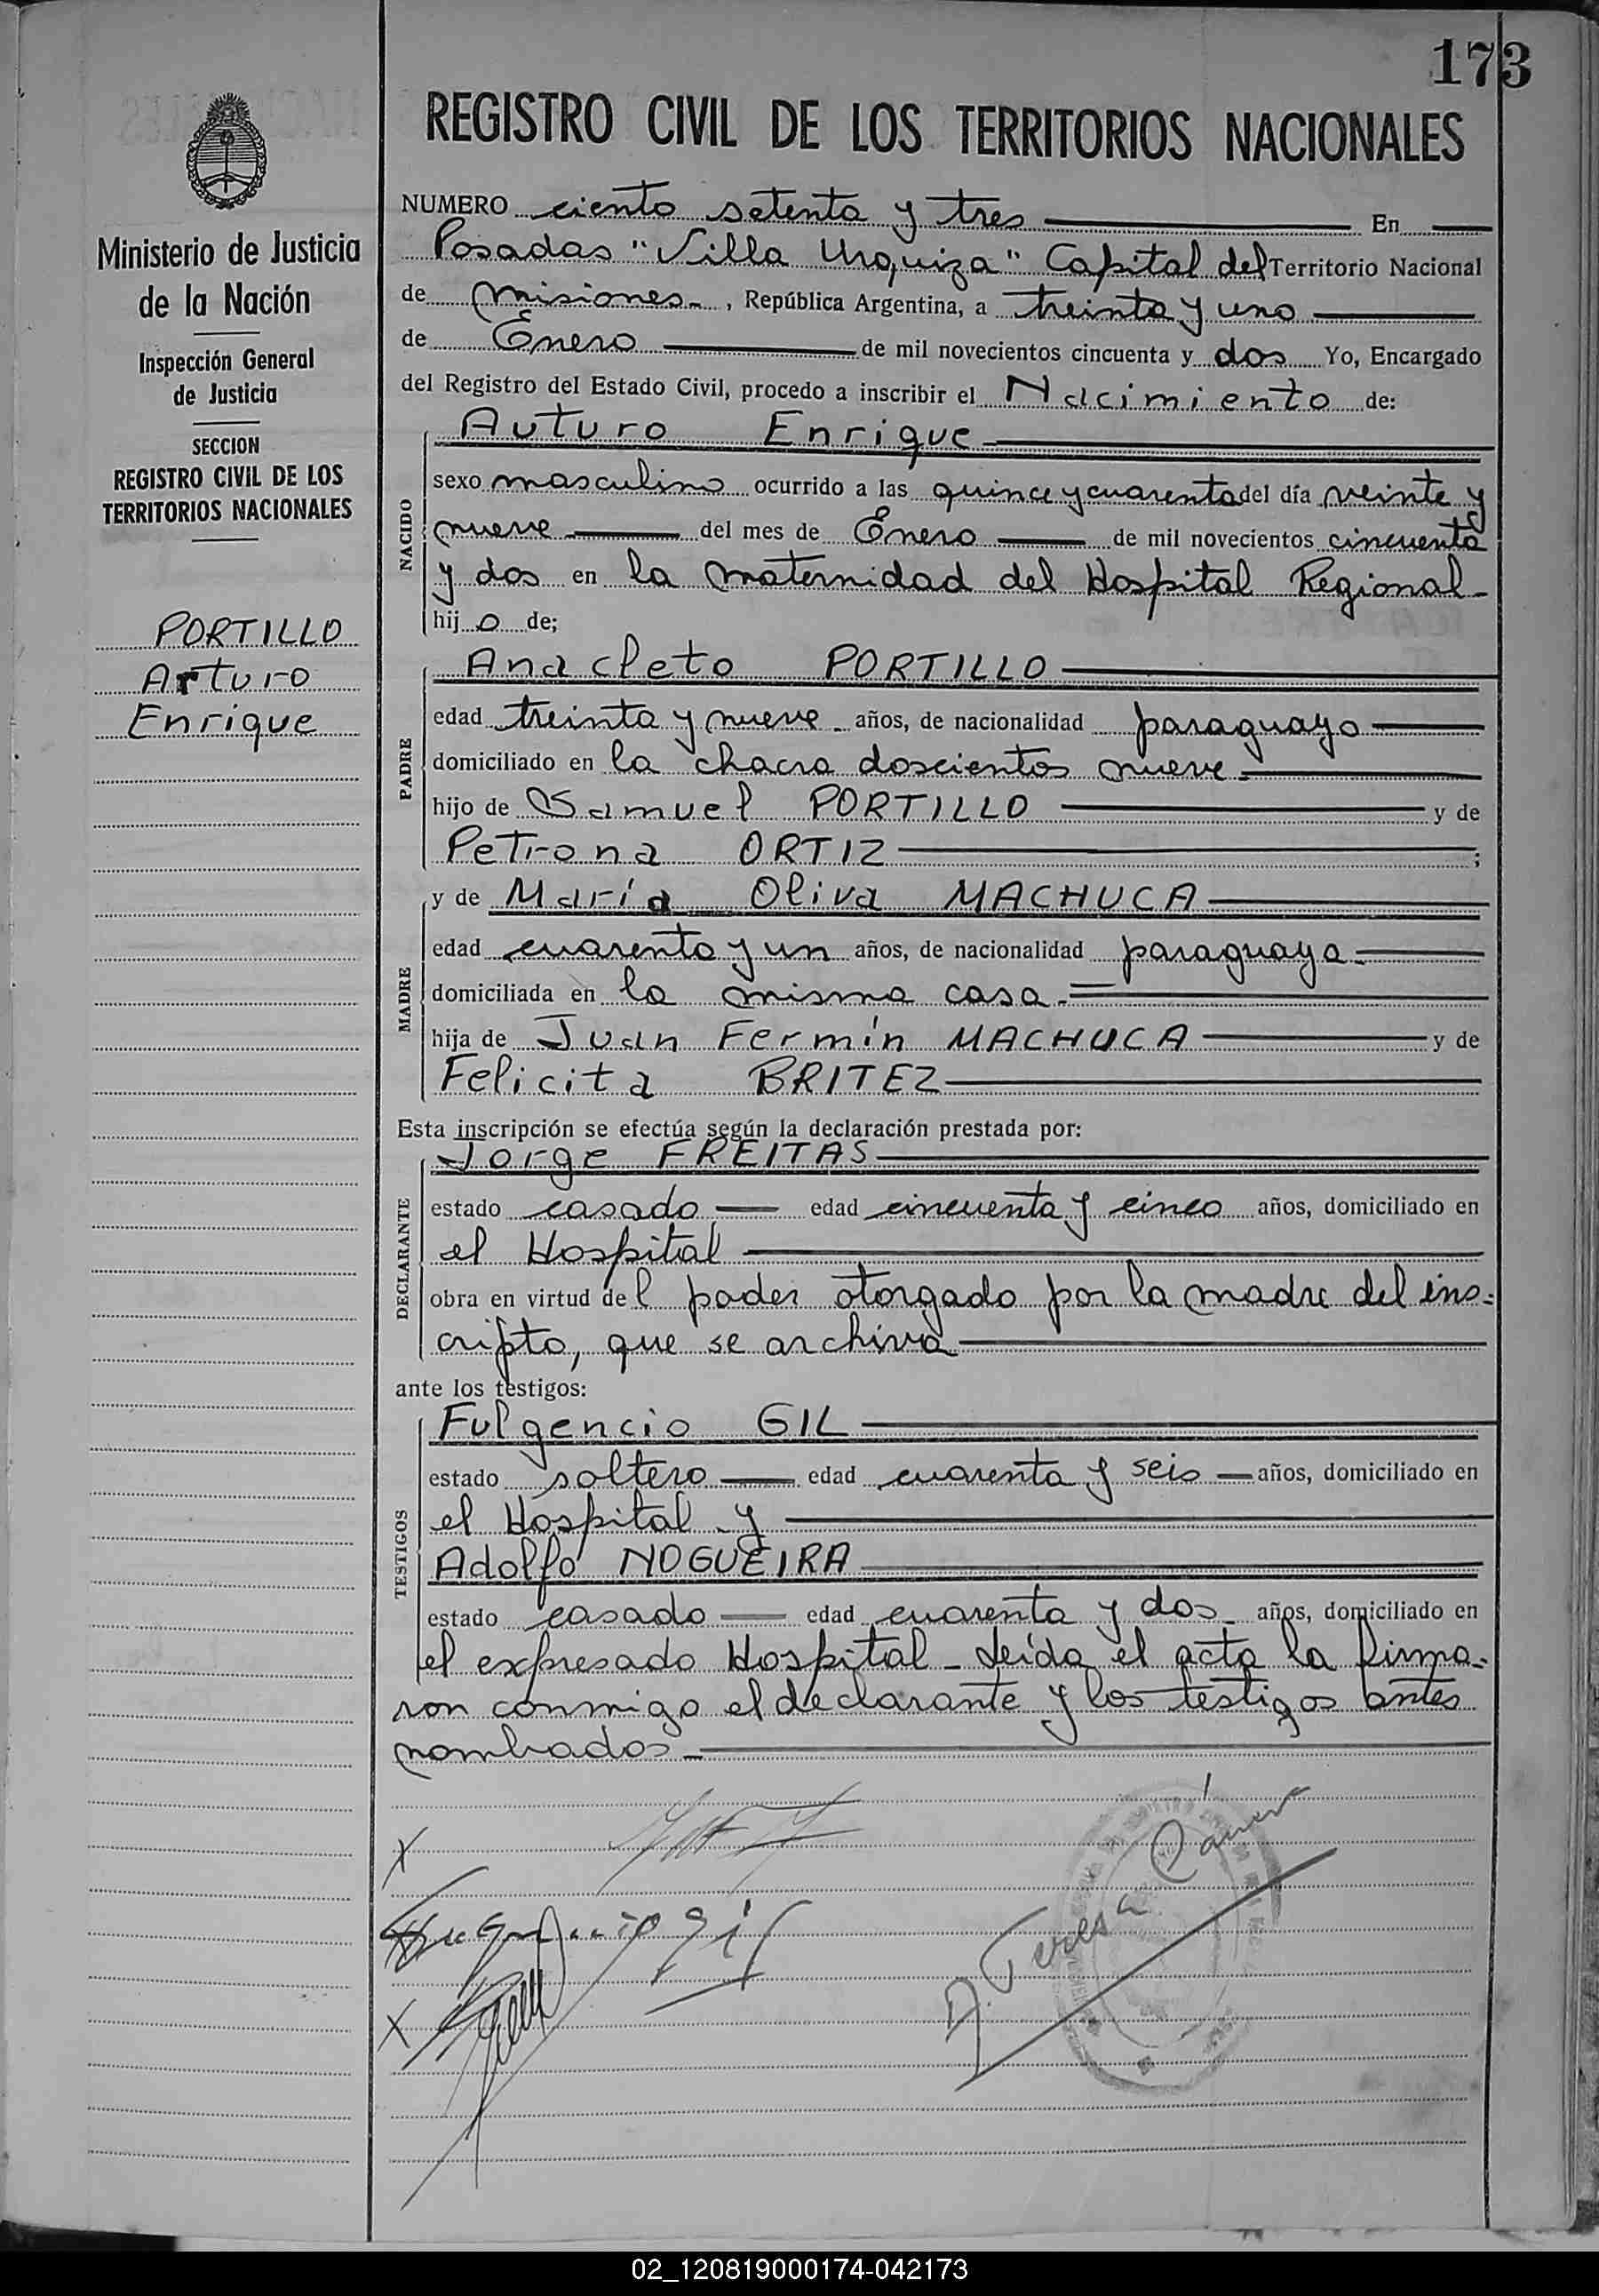 173
REGISTRO CIVIL DE LOS TERRITORIOS NACIONALES
Ministerio de Justicia
de la Nación
Inspección General
de Justicia
SECCION
REGISTRO CIVIL DE LOS
TERRITORIOS NACIONALES
PORTILLO
Arturo
Enrique
NUMERO ciento setenta y tres En
Posadas "Villa Urquiza" Capital del Territorio Nacional
de Misiones, República Argentina, a treinta y uno
de Enero de mil novecientos cincuenta y dos Yo, Encargado
del Registro del Estado Civil, procedo a inscribir el Nacimiento de:
NACIDO
Auturo Enrique
sexo masculino ocurrido a las quince y cuarenta del día veinte y
nueve del mes de Enero de mil novecientos cincuenta
y dos en la maternidad del Hospital Regional-
hijo de;
PADRE
Anacleto PORTILLO
edad treinta y nueve años, de nacionalidad paraguayo
domiciliado en la chacra doscientos nueve
hijo de Samuel PORTILLO y de
Petrona ORTIZ ;
MADRE
y de María Oliva MACHUCA
edad cuarenta y un años, de nacionalidad paraguaya
domiciliada en la misma casa.
hija de Juan Fermín MACHUCA y de
Felicita BRITEZ
Esta inscripción se efectúa según la declaración prestada por:
DECLARANTE
Jorge FREITAS
estado casado edad cincuenta y cinco años, domiciliado en
el Hospital
obra en virtud del poder otorgado por la madre del ins-
cripto, que se archiva
ante los testigos:
TESTIGOS
Fulgencio GIL
estado soltero edad cuarenta y seis años, domiciliado en
el Hospital y
Adolfo NOGUEIRA
estado casado edad cuarenta y dos años, domiciliado en
el expresado Hospital - Leída el acta la firma-
ron conmigo el declarante y los testigos antes
nombrados
02_120819000174-042173